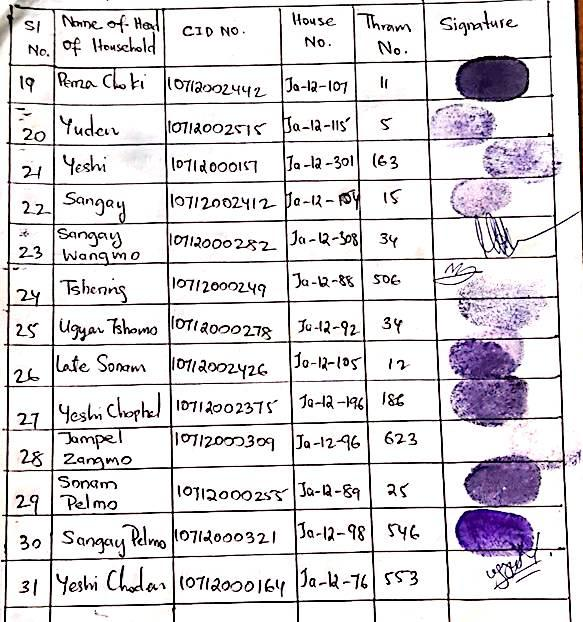 Sl No. Name of Head of Household CID NO. House No. Thram No. Signature
19 Pema Choki 10712002442 Ja-12-107 11
20 Yuden 10712002515 Ja-12-115 5
21 Yeshi 10712000157 Ja-12-301 163
22 Sangay 10712002412 Ja-12- 15
23 Sangay Wangmo 10712000282 Ja-12-308 34
24 Tshering 10712000249 Ja-12-88 506
25 Ugyan Tshomo 10712000278 Ja-12-92 34
26 Late Sonam 10712002426 Ja-12-105 12
27 Yeshi Chophel 10712002375 Ja-12-196 186
28 Jampel Zangmo 10712000309 Ja-12-96 623
29 Sonam Pelmo 10712000255 Ja-12-89 25
30 Sangay Pelmo 10712000321 Ja-12-98 546
31 Yeshi Choden 10712000164 Ja-12-76 553